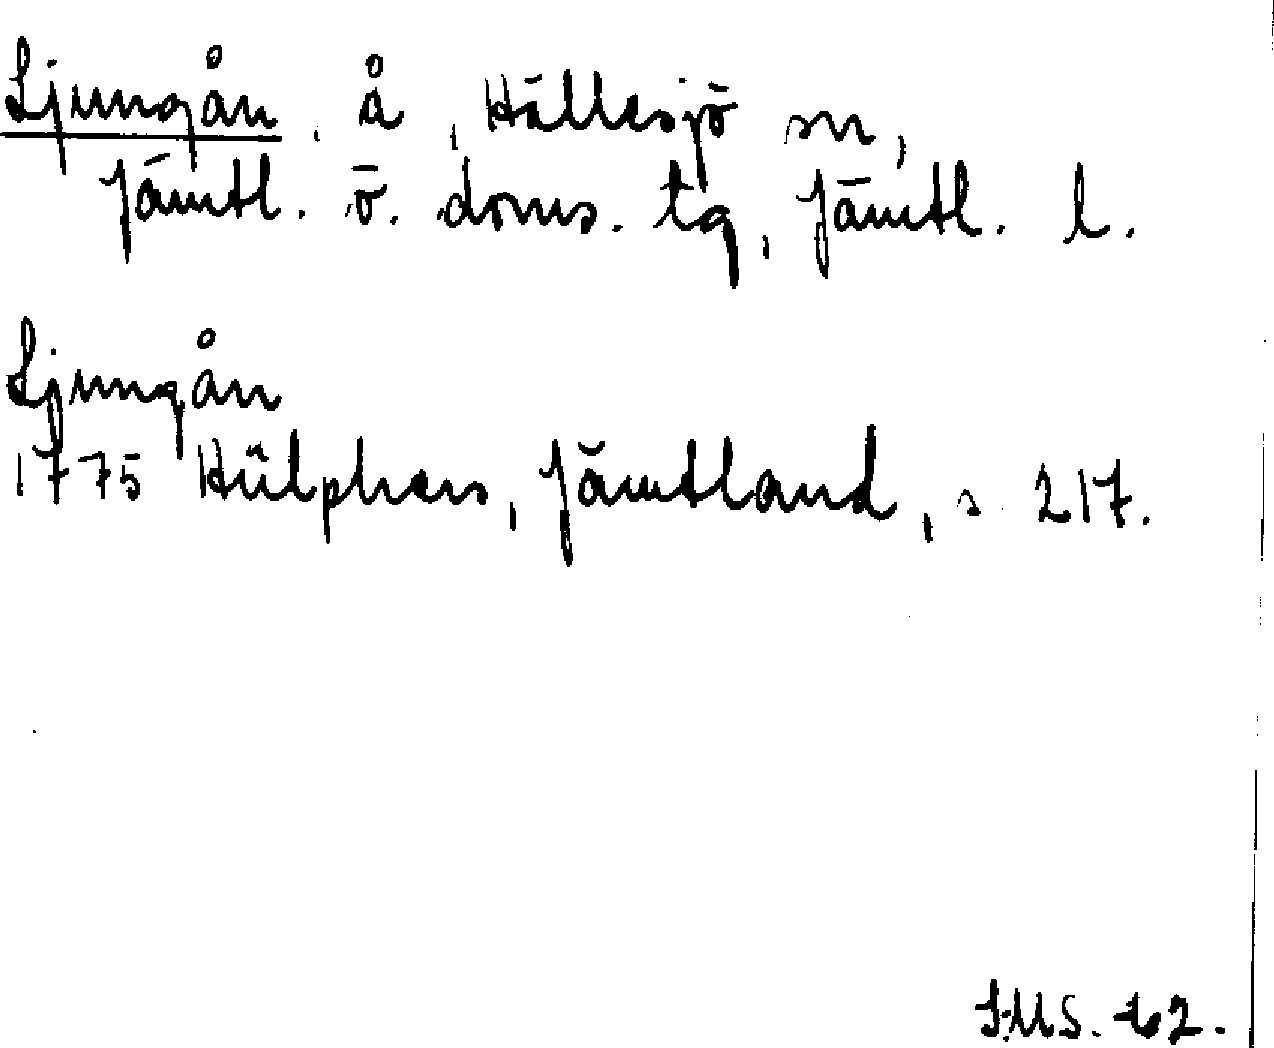 Ljungån, å, Hällesjö sn,
Jämtl. ö. doms. tg, Jämtl. l.
Ljungån
1775 Hülphers, Jämtland, s 217.
I.M.S. 62.